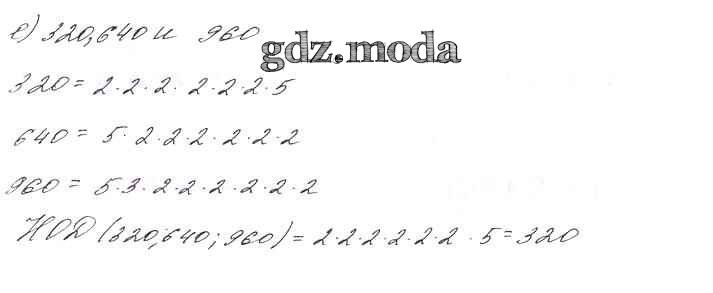 е) 320, 640 и 960
gdz.moda
320 = 2·2·2·2·2·2·5
640 = 5·2·2·2·2·2·2
960 = 5·3·2·2·2·2·2·2
НОД (320; 640; 960) = 2·2·2·2·2·2·5 = 320